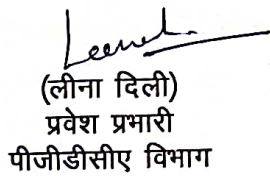 (लीना दिली)
प्रवेश प्रभारी
पीजीडीसीए विभाग